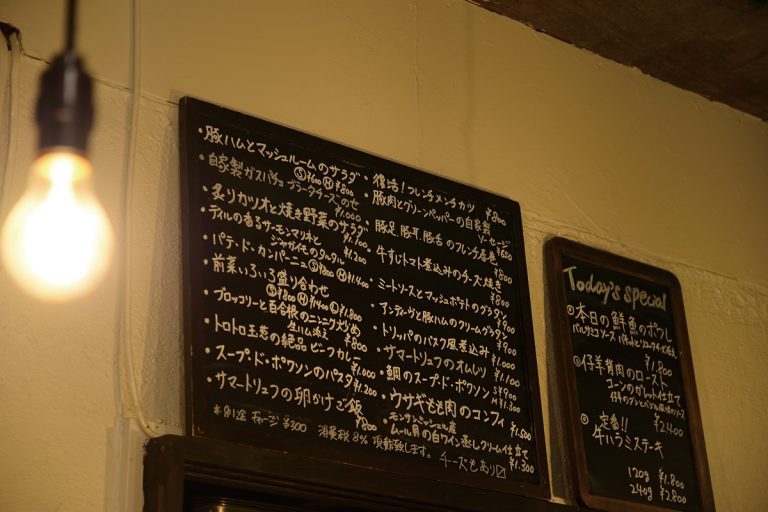 ・豚ハムとマッシュルームのサラダ
Ⓢ¥600 Ⓜ¥800
・自家製ガスパチョ ブラータチーズのせ
¥1,000
・炙りカツオと焼き野菜のサラダ
¥1,700
・ディルの香るサーモンマリネと
ジャガイモのタルタル ¥1,200
・パテ・ド・カンパーニュ Ⓢ¥800 Ⓜ¥1,400
・前菜いろいろ盛り合わせ
Ⓢ¥800 Ⓜ¥1,400 Ⓛ¥1,800
・ブロッコリーと百合根のニンニク炒め
生ハム添え ¥800
・トロトロ玉葱の絶品ビーフカレー
¥1,000
・スープ・ド・ポワソンのパスタ
¥1,200
・サマートリュフの卵かけご飯
¥800
*別途 チャージ ¥300 消費税8% 頂戴致します。
復活！フレンチメンチカツ ¥800
・豚肉とグリーンペッパーの自家製
ソーセージ ¥650
・豚足、豚耳、豚舌のフレンチ春巻
¥800
・牛すじトマト煮込みのチーズ焼き
¥800
・ミートソースとマッシュポテトのグラタン
¥900
・アンディーヴと豚ハムのクリームグラタン
¥900
・トリッパのバスク風煮込み ¥1,000
・サマートリュフのオムレツ ¥1,100
・鯛のスープ・ド・ポワソン S¥900
M¥1,300
・ウサギもも肉のコンフィ
¥1,500
・モンサンミッシェル産
ムール貝の白ワイン蒸しクリーム仕立て
¥1,300
チーズもあり〼
Today's special
◎本日の鮮魚のポワレ
バルサミコソース
¥1,800
◎仔羊背肉のロースト
¥2,400
◎定番!!
牛ハラミステーキ
120g ¥1,800
240g ¥2,800